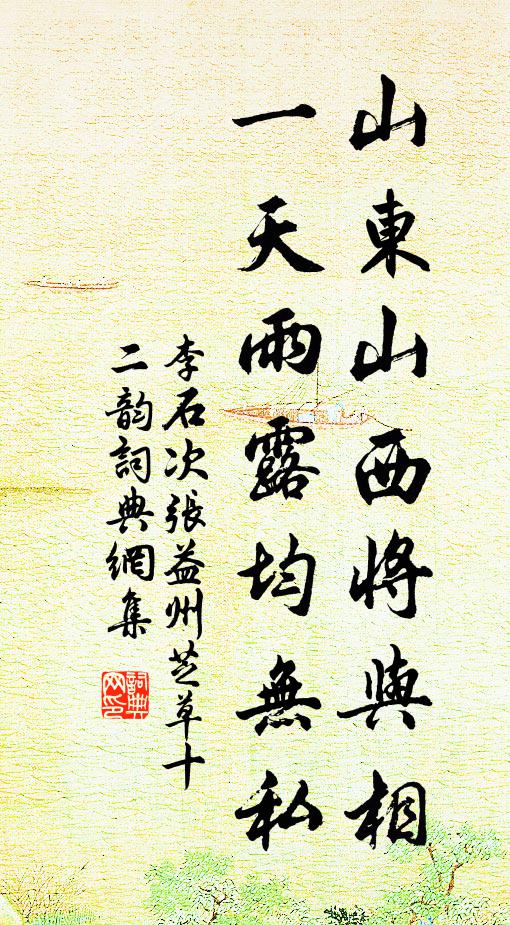 山東山西將與相
一天雨露均無私
李石次張益州芝草十
二韵詞典網集
詞典
网印